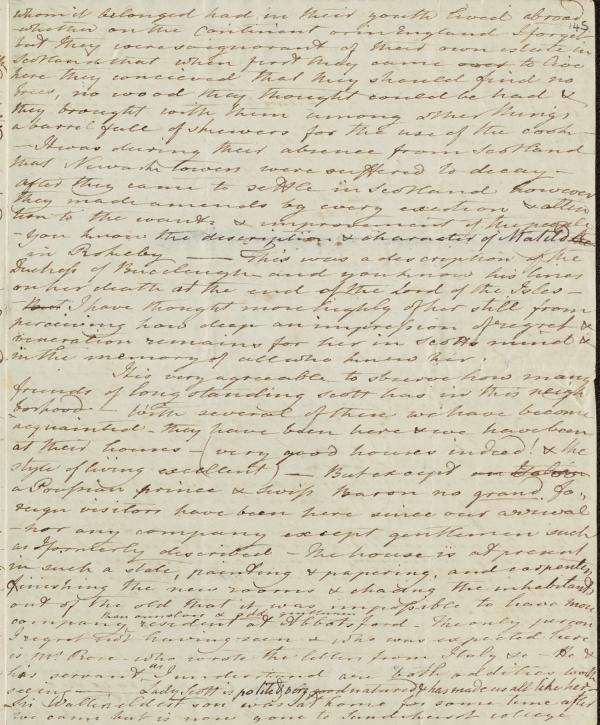 145
whom it belonged had in their youth lived abroad
whether on the Continent or in England I forget
but they were so ignorant of their own estate in
Scotland that when first they came over to live
here they conceived that they should find no
trees, no wood they thought could be had &
they brought with them among other things
a barrel full of skewers for the use of the cook –
– It was during their absence from Scotland
that Newark towers were suffered to decay –
after they came to settle in Scotland however
they made amends by every exertion & atten
tion to the wants & improvement of the people
– You know the description & character of Matilda
in Rokeby – This was a description of the
Duchess of Buccleugh – and you know his lines
on her death at the end of the Lord of the Isles –
– But I have thought more highly of her still from
perceiving how deep an impression of regret &
veneration remains for her in Scotts mind &
in the memory of all who knew her.
It is very agreeable to observe how many
friends of long standing Scott has in this neigh
borhood – With several of these we have become
acquainted – they have been here & we have been
at their houses – (very good houses indeed! & the
style of living excellent) – But except
a Prussian prince & Swiss Baron no grand fo,
reign visitors have been here since our arrival
– nor any company except gentlemen such
as I formerly described – The house is at present
in such a state, painting & papering, and carpenters
finishing the new rooms & chasing the inhabitants
out of the old that it was impossible to have more
company resident at Abbotsford – The only person
than ourselves & gentlemen
I regret not having seen & who was expected here
is Mr Rose – who wrote the letters from Italy &c – He &
his servant I understand are both oddities worth
seeing – Lady Scott is polite & very good natured & has made us all like her –
Sir Walters eldest son was at home for some time after
we came but is now gone to Sandhurst college